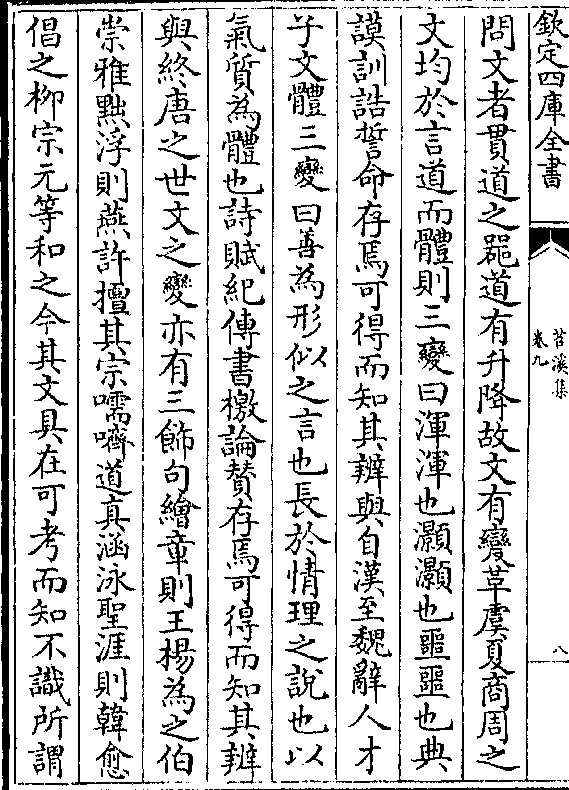 欽定四庫全書
苕溪集
卷九
八
問文者貫道之噐道有升降故文有變革虞夏商周之
文均於言道而體則三變曰渾渾也灝灝也噩噩也典
謨訓誥誓命存焉可得而知其辨與自漢至魏辭人才
子文體三變曰善為形似之言也長於情理之說也以
氣質為體也詩賦紀傳書檄論贊存焉可得而知其辨
與終唐之世文之變亦有三飾句繪章則王楊為之伯
崇雅黜浮則燕許擅其宗嚅嚌道真涵泳聖涯則韓愈
倡之柳宗元等和之今其文具在可考而知不識所謂